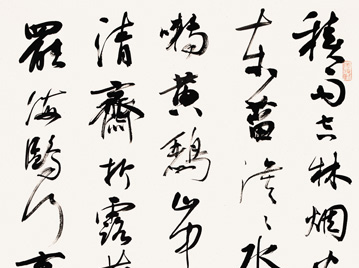 積雨空林烟火
東菑漠漠水
囀黃鸝山中
清齋折露葵
罷海鷗何事